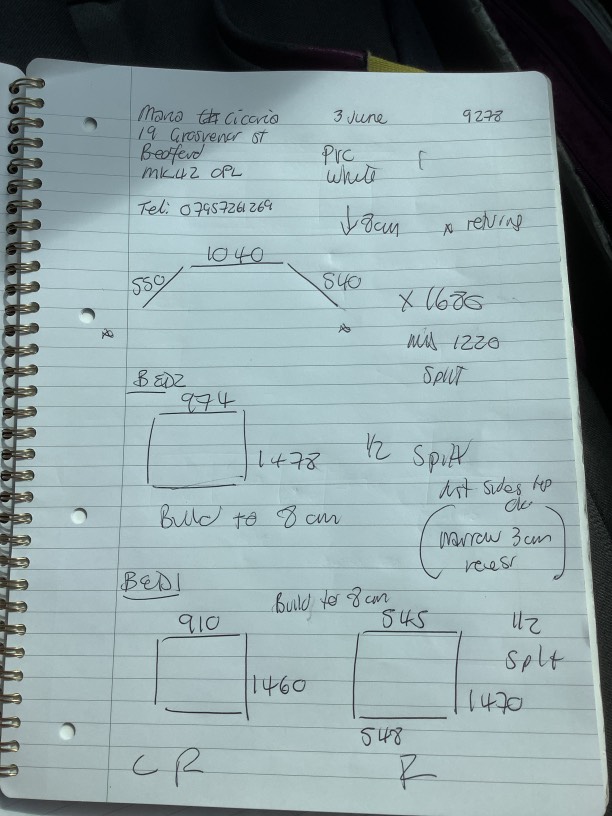 Mario Ciccario 3 June 9278
19 Grosvenor st
Bedford PVC
MK42 0PL White
Tel: 07957261269
↓ 8cm * returns
1040
550 540
x 1686
mid 1220
Split
BED2
974
1478 1/2 Split
not sides top
Build to 8 cm
(narrow 3cm
recess)
BED1
Build to 8cm
910 545 1/2
Split
1460 1470
548
C R R